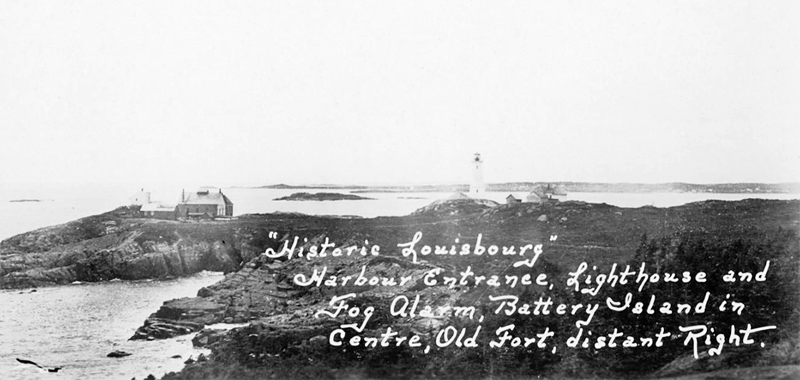 "Historic Louisbourg"
Harbour Entrance, Lighthouse and
Fog Alarm, Battery Island in
Centre, Old Fort, distant Right.